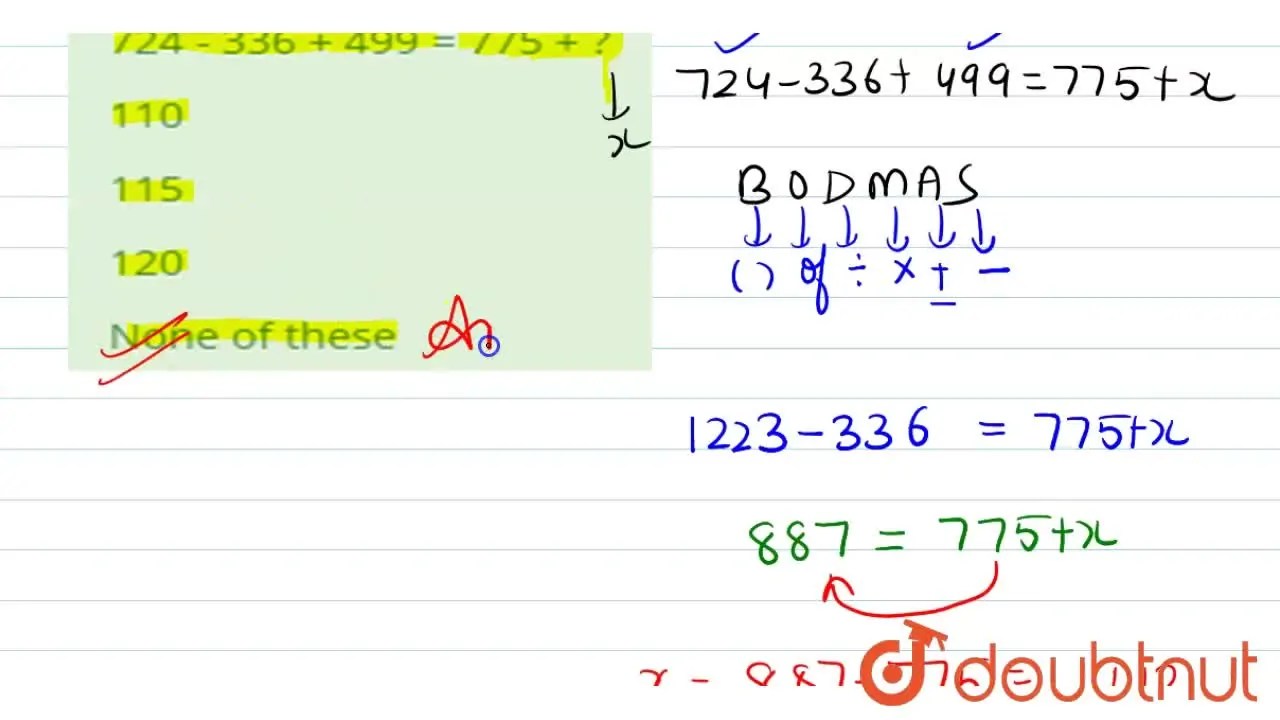 724 - 336 + 499 = 775 + ?
x
110
115
120
None of these An
724-336+ 499=775+x
B O D M A S
( ) of ÷ × + −
1223-336 = 775+x
887 = 775+x
doubtnut